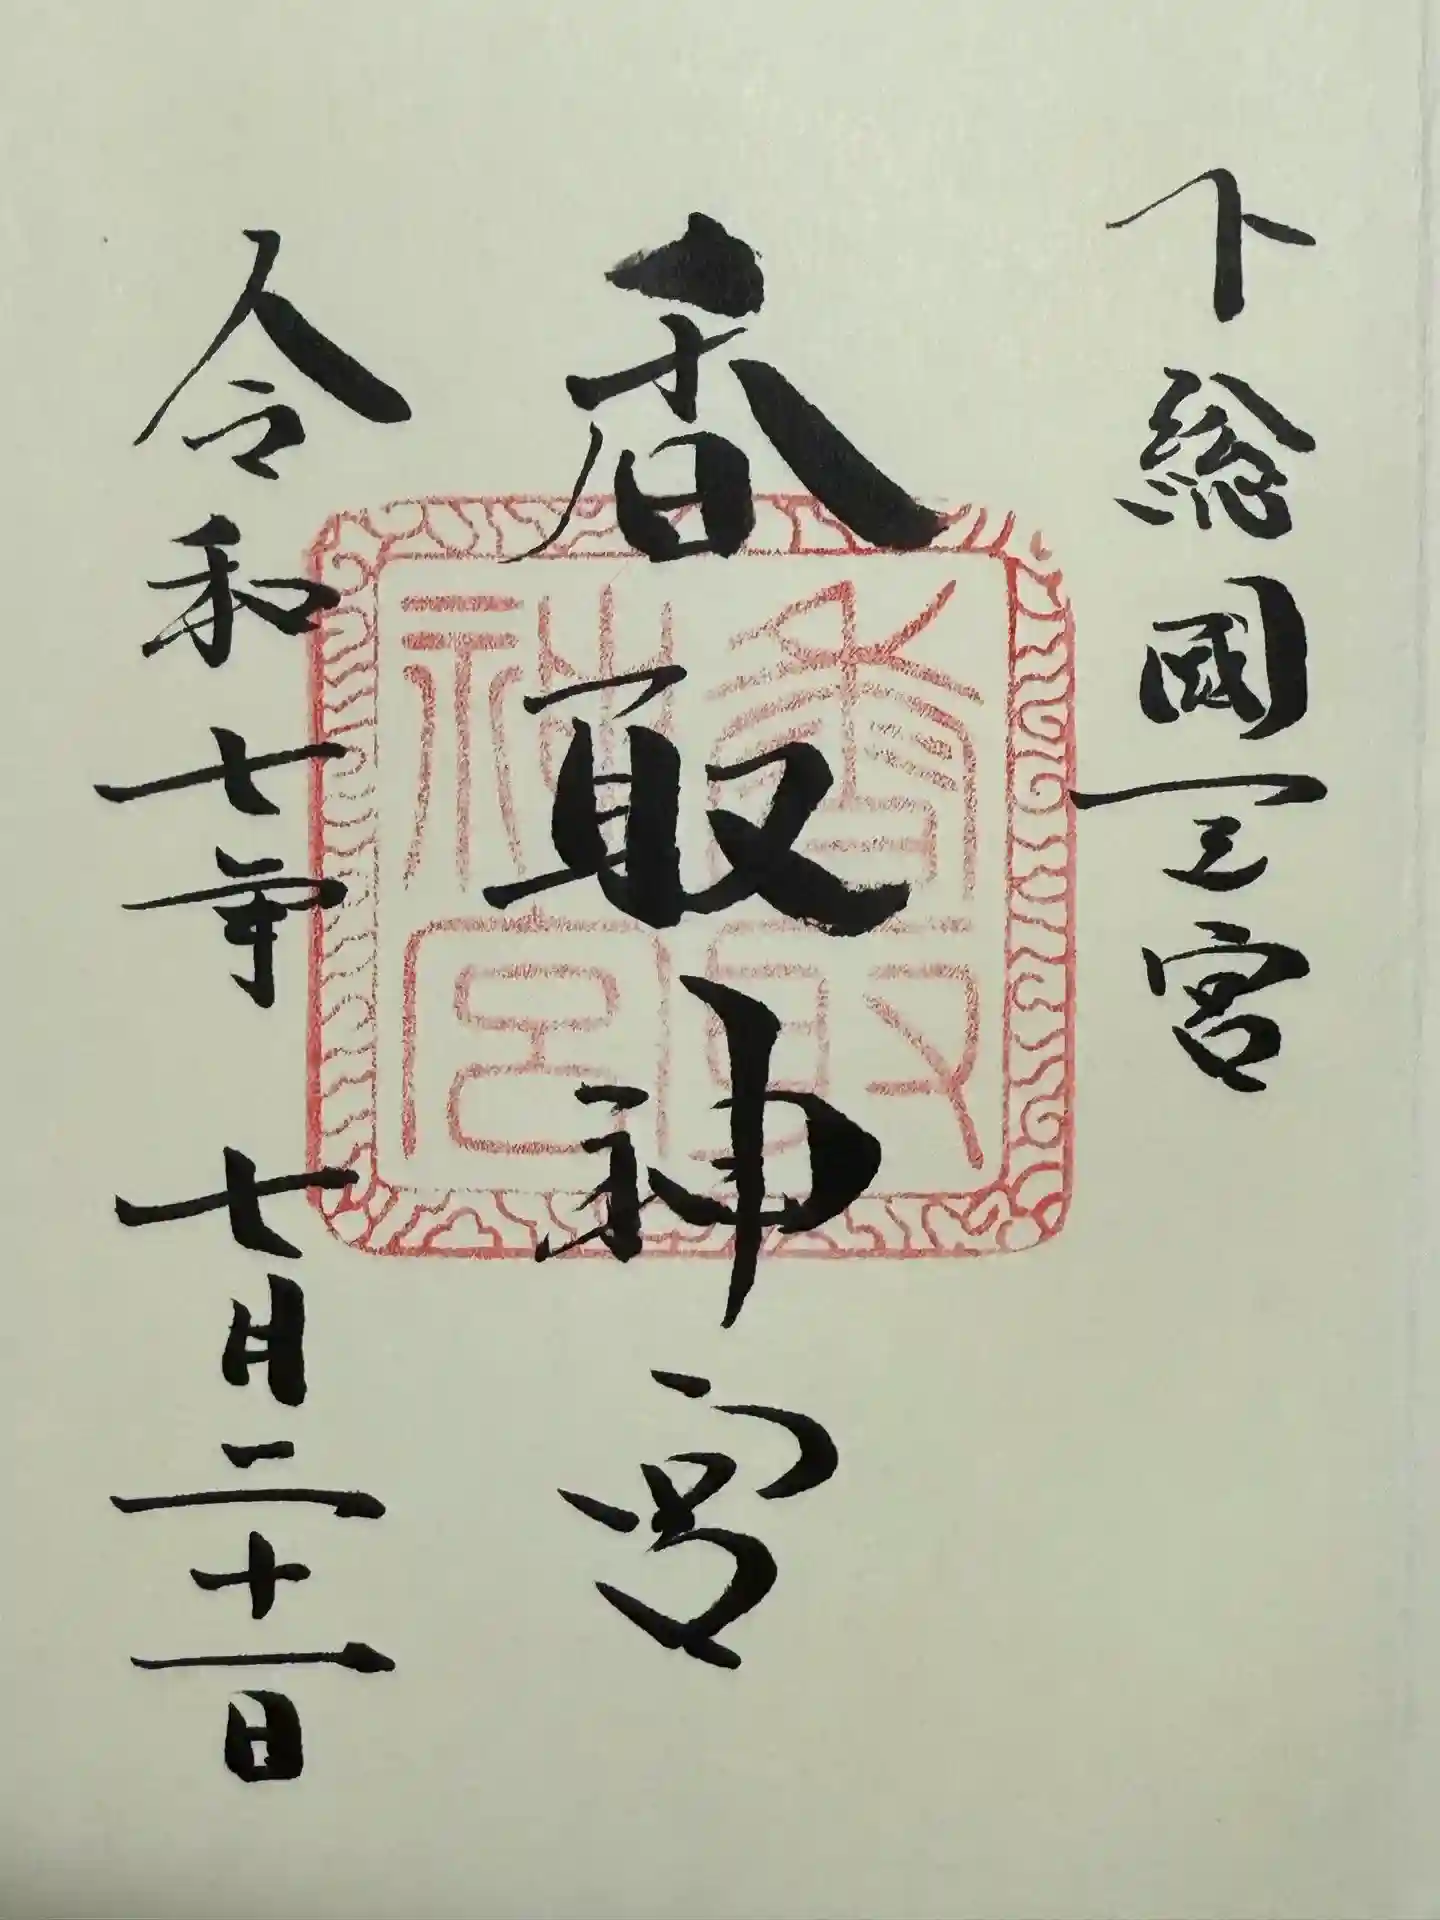 下総國一之宮
香取神宮
香取神宮
令和七年七月二十一日